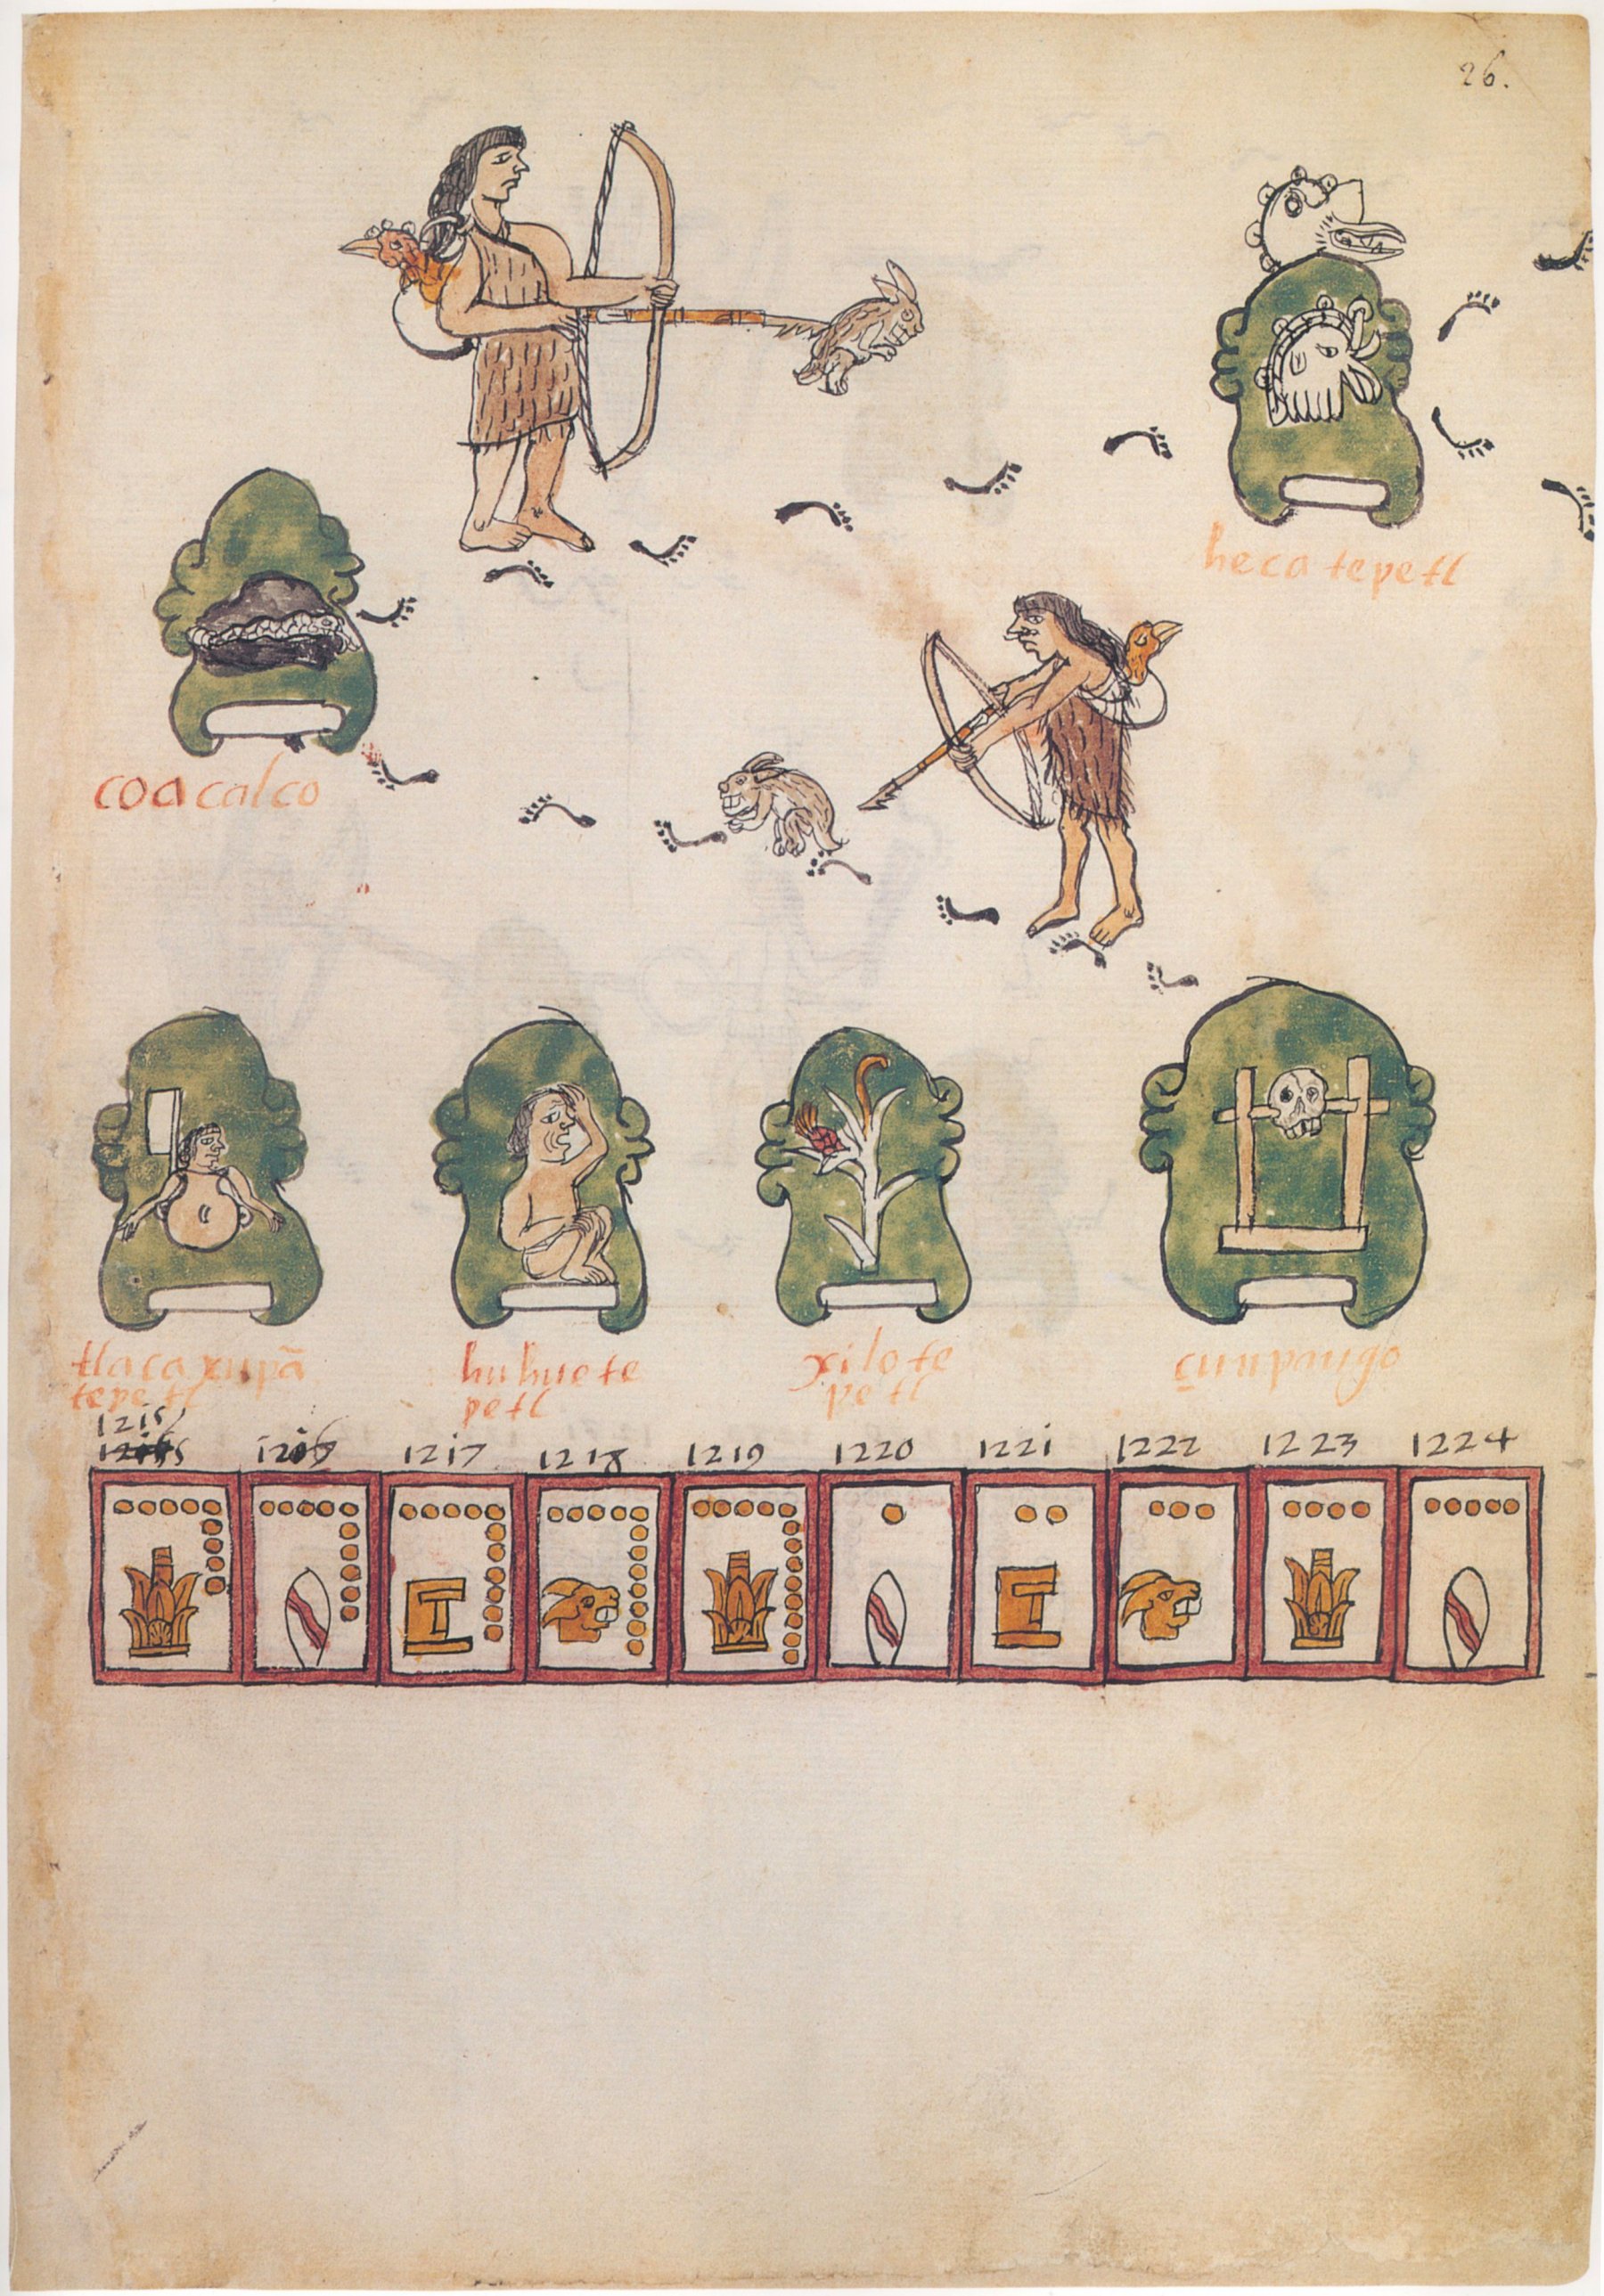 26.
heca tepetl
coacalco
tlaca xupā
tepetl
huhuete
petl
xilote
petl
çunpango
1215
1216 1217 1218 1219 1220 1221 1222 1223 1224